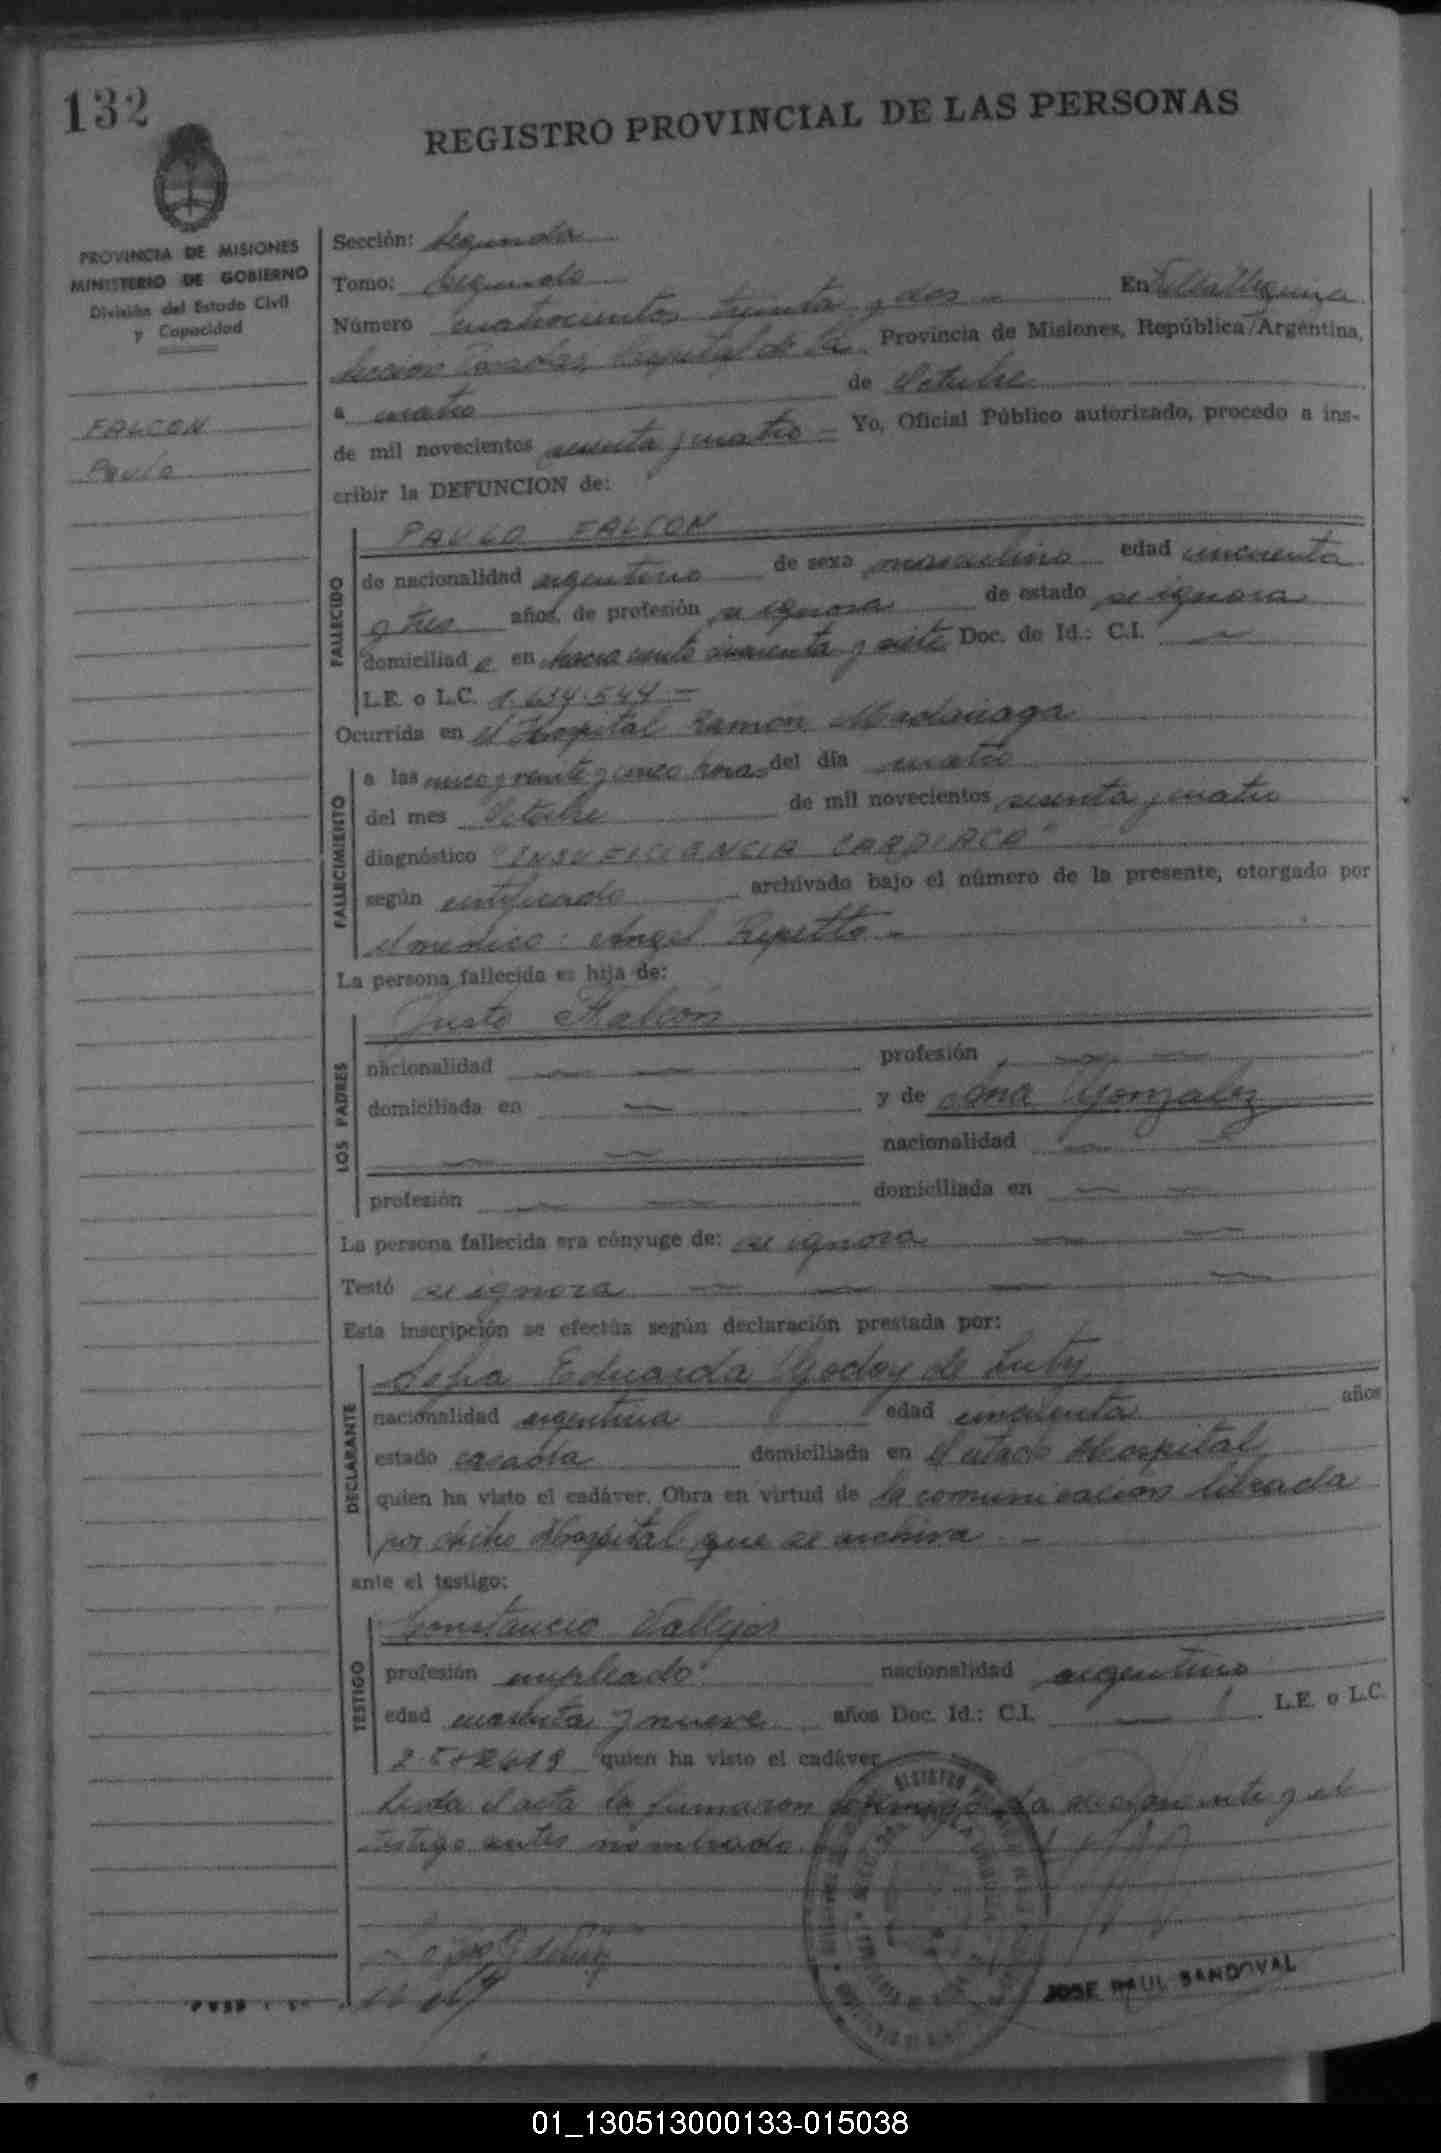 132
REGISTRO PROVINCIAL DE LAS PERSONAS
PROVINCIA DE MISIONES
MINISTERIO DE GOBIERNO
División del Estado Civil
y Capacidad
FALCON
Paulo
Sección: Segunda
Tomo: Segundo
Número cuatrocientos treinta y dos - En Villa Urquiza
Seccion Posadas, Capital de la Provincia de Misiones, República Argentina,
a cuatro de Octubre
de mil novecientos sesenta y cuatro - Yo, Oficial Público autorizado, procedo a ins-
cribir la DEFUNCION de:
FALLECIDO
PAULO FALCON
de nacionalidad argentino de sexo masculino edad cincuenta
y tres años, de profesión se ignora de estado se ignora
domiciliad o en chacra ciento cincuenta y siete Doc. de Id.: C.I. -
L.E. o L.C. 1.614.544 -
Ocurrida en el Hospital Ramon Madariaga
FALLECIMIENTO
a las cinco y veinte y cinco horas del día cuatro
del mes Octubre de mil novecientos sesenta y cuatro
diagnóstico "INSUFICIENCIA CARDIACA"
según certificado archivado bajo el número de la presente, otorgado por
el medico: Angel Repetto -
La persona fallecida es hija de:
LOS PADRES
Justo Falcón
nacionalidad — — profesión — —
domiciliada en — y de Ana Gonzalez
— — nacionalidad — —
profesión — — domiciliada en — —
La persona fallecida era cónyuge de: se ignora — —
Testó se ignora — — — —
Esta inscripción se efectúa según declaración prestada por:
DECLARANTE
Eduarda Godoy de
nacionalidad argentina edad cincuenta años
estado casada domiciliada en el citado Hospital
quien ha visto el cadáver. Obra en virtud de la comunicacion librada
por dicho Hospital que se archiva. -
ante el testigo:
TESTIGO
Constancio Vallejos
profesión empleado nacionalidad argentino
edad cuarenta y nueve años Doc. Id.: C.I. — L.E. o L.C.
quien ha visto el cadáver
Leida el acta la firmaron conmigo la declarante y el
testigo antes nombrado.
JOSE RAUL SANDOVAL
01_130513000133-015038